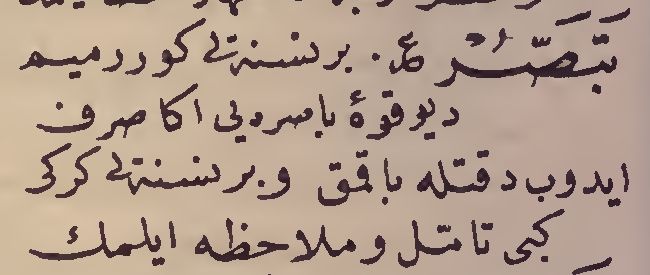 تَبَصُّرْ ع. برنسنه‌یی کوررمیم
دیو قوهٔ باصره‌یی اکا صرف
ایدوب دقتله باقمق و برنسنه‌یی کرکی
کبی تامّل و ملاحظه ایلمك